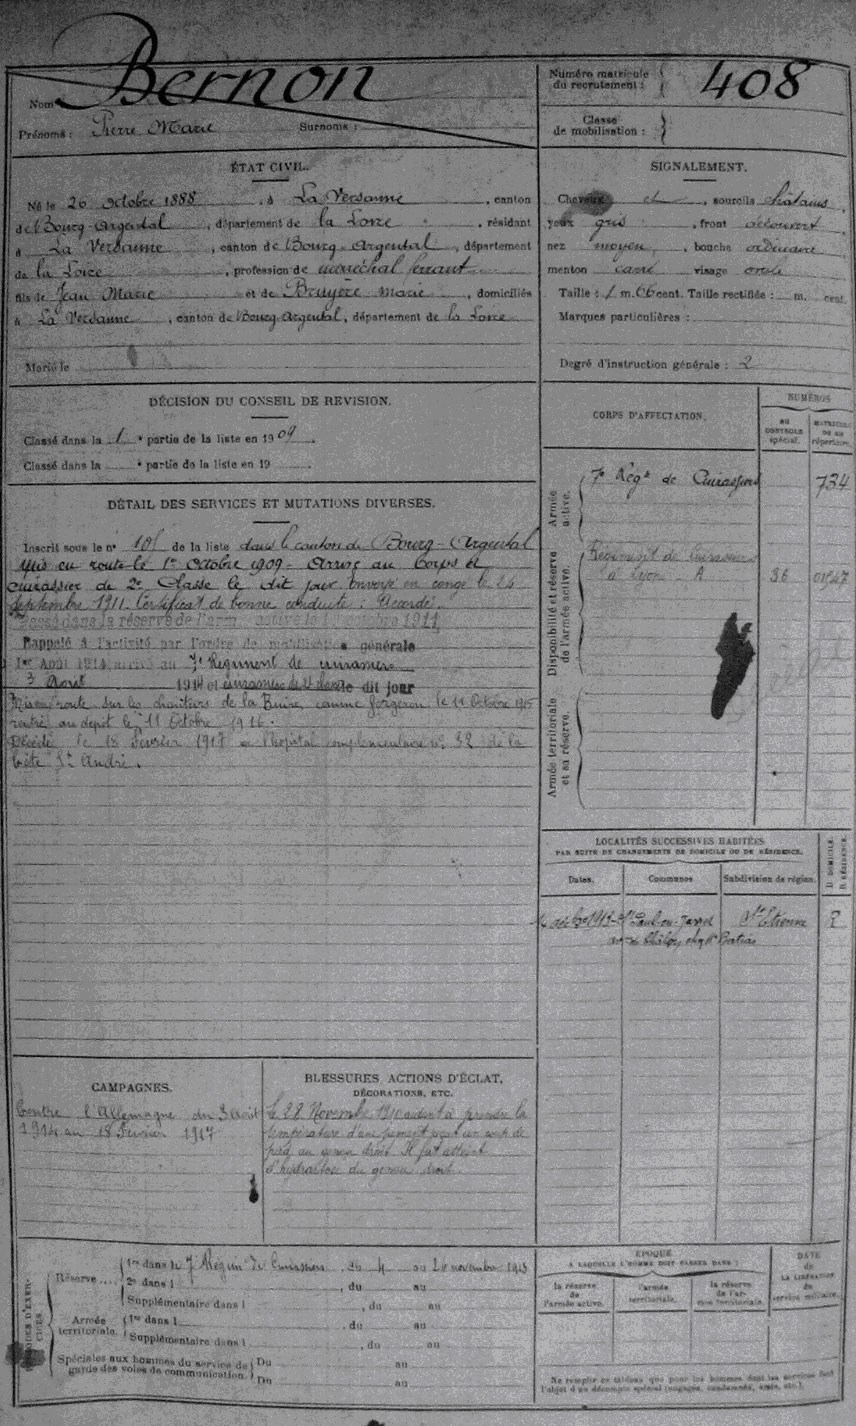 Nom Bernon
Prénoms : Pierre Marie Surnoms :
Numéro matricule
du recrutement : 408
Classe
de mobilisation :
ÉTAT CIVIL.
Né le 20 octobre 1888, à La Versanne, canton
de Bourg-Argental, département de la Loire, résidant
à La Versanne, canton de Bourg-Argental, département
de la Loire, profession de maréchal ferrant
fils de Jean Marie et de Bruyère Marie, domiciliés
à La Versanne, canton de Bourg-Argental, département de la Loire
Marié le
SIGNALEMENT.
Cheveux et, sourcils châtains
yeux gris, front découvert
nez moyen, bouche ordinaire
menton carré visage ovale
Taille : 1 m. 66 cent. Taille rectifiée : m. cent.
Marques particulières :
Degré d'instruction générale : 2
DÉCISION DU CONSEIL DE REVISION.
Classé dans la 1e partie de la liste en 1909.
Classé dans la e partie de la liste en 19
DÉTAIL DES SERVICES ET MUTATIONS DIVERSES.
Inscrit sous le n° de la liste dans le canton de Bourg-Argental
Mis en route le 1er octobre 1909 - Arrivé au Corps et
cuirassier de 2e Classe le dit jour Envoyé en congé le 24
septembre 1911. Certificat de bonne conduite : Accordé.
Passé dans la réserve de l'armée active le 1 octobre 1911
Rappelé à l'activité par l'ordre de mobilisation générale
1er Août 1914 arrivé au 7e Régiment de cuirassiers
3 Août 1914 et cuirassier de 2e classe le dit jour
Mis en route sur les chantiers de la Buire comme forgeron le 11 Octobre 1915
rentré au dépôt le 11 Octobre 1916.
Décédé le 18 Février 1917 à l'hôpital complémentaire n° 32 de la
Côte St André.
CORPS D'AFFECTATION.
NUMÉROS
AU
CONTROLE
spécial.
MATRICULE
OU AU
répertoire.
Armée
active.
7e Régt de Cuirassiers 734
Disponibilité et réserve
de l'armée active.
Régiment de Cuirassiers
à Lyon A 36
Armée territoriale
et sa réserve.
LOCALITÉS SUCCESSIVES HABITÉES
PAR SUITE DE CHANGEMENTS DE DOMICILE OU DE RÉSIDENCE.
Dates. Communes Subdivision de région.
D. DOMICILE.
R. RÉSIDENCE.
1913 St Paul-en-Jarret St Etienne
CAMPAGNES.
Contre l'Allemagne du 3 Août
1914 au 18 Février 1917
BLESSURES, ACTIONS D'ÉCLAT,
DÉCORATIONS, ETC.
Le 28 Novembre 1910 aidant à prendre la
température d'une jument reçut un coup de
pied au genou droit. Il fut atteint
d'hydarthose du genou droit
Réserve .... 1re dans le 7e Régim. de Cuirassiers, du 4 au 20 novembre 1913
2e dans l, du au
Supplémentaire dans l, du au
Armée
territoriale. 1re dans l, du au
Supplémentaire dans l, du au
Spéciales aux hommes du service de
garde des voies de communication. Du au
Du au
ÉPOQUE
A LAQUELLE L'HOMME DOIT PASSER DANS :
la réserve
de
l'armée active.
l'armée
territoriale.
la réserve
de l'ar-
mée territoriale.
DATE
de
LA LIBÉRATION
du
service militaire.
Ne remplir ce tableau que pour les hommes dont les services font
l'objet d'un décompte spécial (engagés, condamnés, omis, etc.).